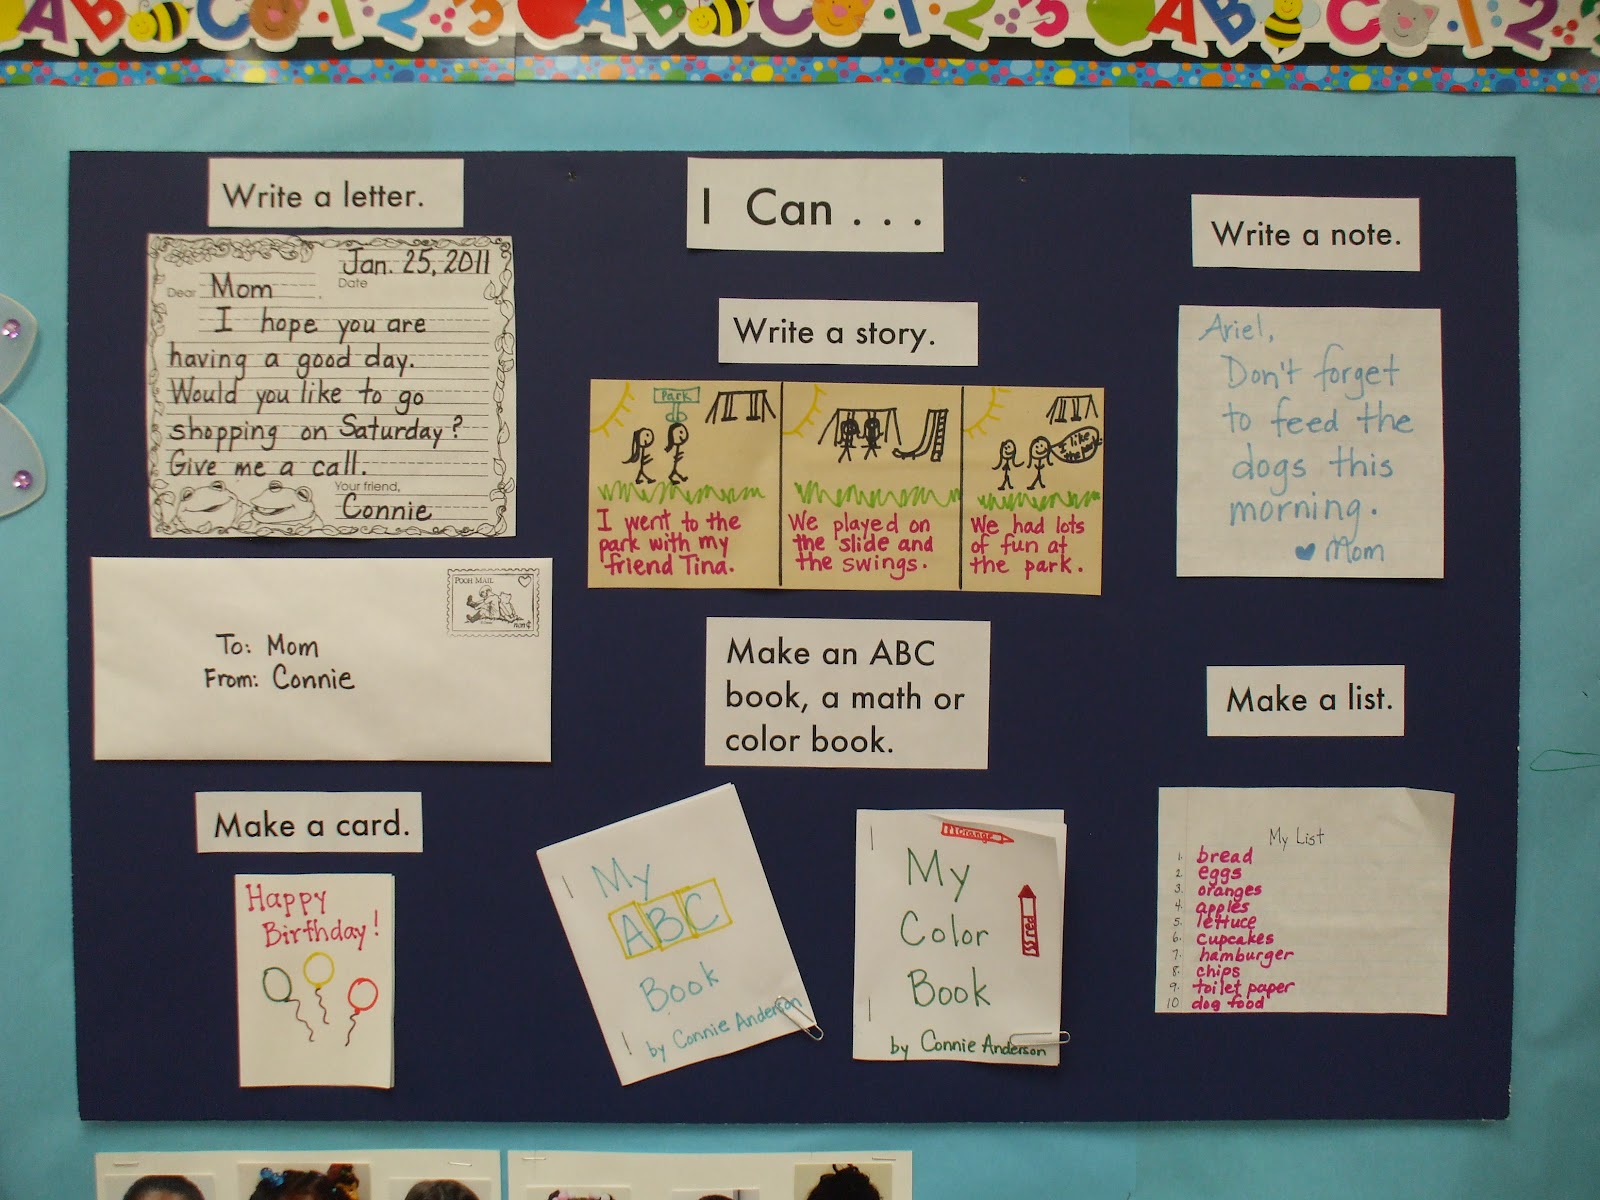 ABC 1 2 3 ABC 1 2 3 ABC 1 2
I Can . . .
Write a letter.
Jan. 25, 2011
Date
Dear Mom
I hope you are
having a good day.
Would you like to go
shopping on Saturday?
Give me a call.
Your friend,
Connie
POOH MAIL
To: Mom
From: Connie
Make a card.
Happy
Birthday!
Write a story.
Park
I went to the
park with my
friend Tina.
We played on
the slide and
the swings.
I like
the park.
We had lots
of fun at
the park.
Make an ABC
book, a math or
color book.
My
ABC
Book
by Connie Anderson
orange
My
red
Color
Book
by Connie Anderson
Write a note.
Ariel,
Don't forget
to feed the
dogs this
morning.
♥ Mom
Make a list.
My List
1. bread
2. eggs
3. oranges
4. apples
5. lettuce
6. cupcakes
7. hamburger
8. chips
9. toilet paper
10 dog food